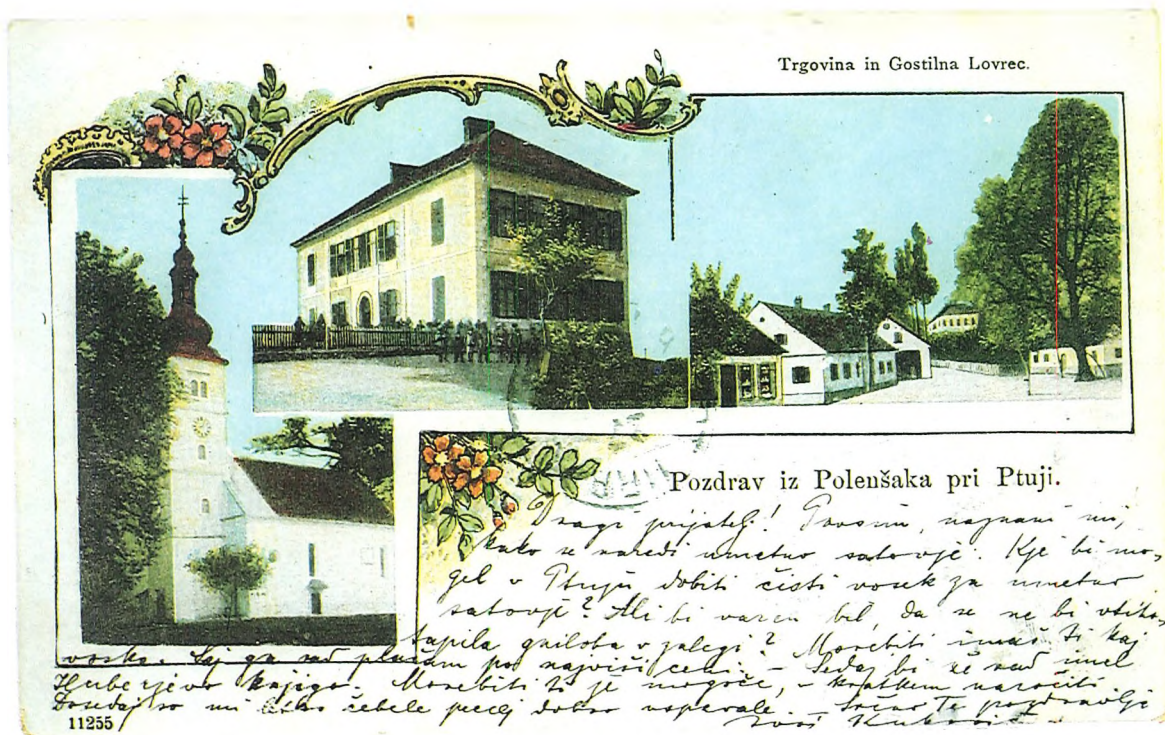 Trgovina in Gostilna Lovrec.
Pozdrav iz Polenšaka pri Ptuji.
Dragi prijatelj! Prosim, naznani mi,
kako se naredi umetno satovje. Kje bi mo-
gel v Ptuju dobiti čisti vosek za umetno
satovje? Ali bi varen bil, da se ne bi
gniloba v zalegi? Morebiti imaš ti kaj
voska. Saj ga rad plačam po najvišji ceni. – Sedaj bi že rad imel
knjigo. Morebiti ti je mogoče, v kratkem naročiti.
Dosedaj so mi letos čebele precej dobro uspevale. Srčno te pozdravlja
11255